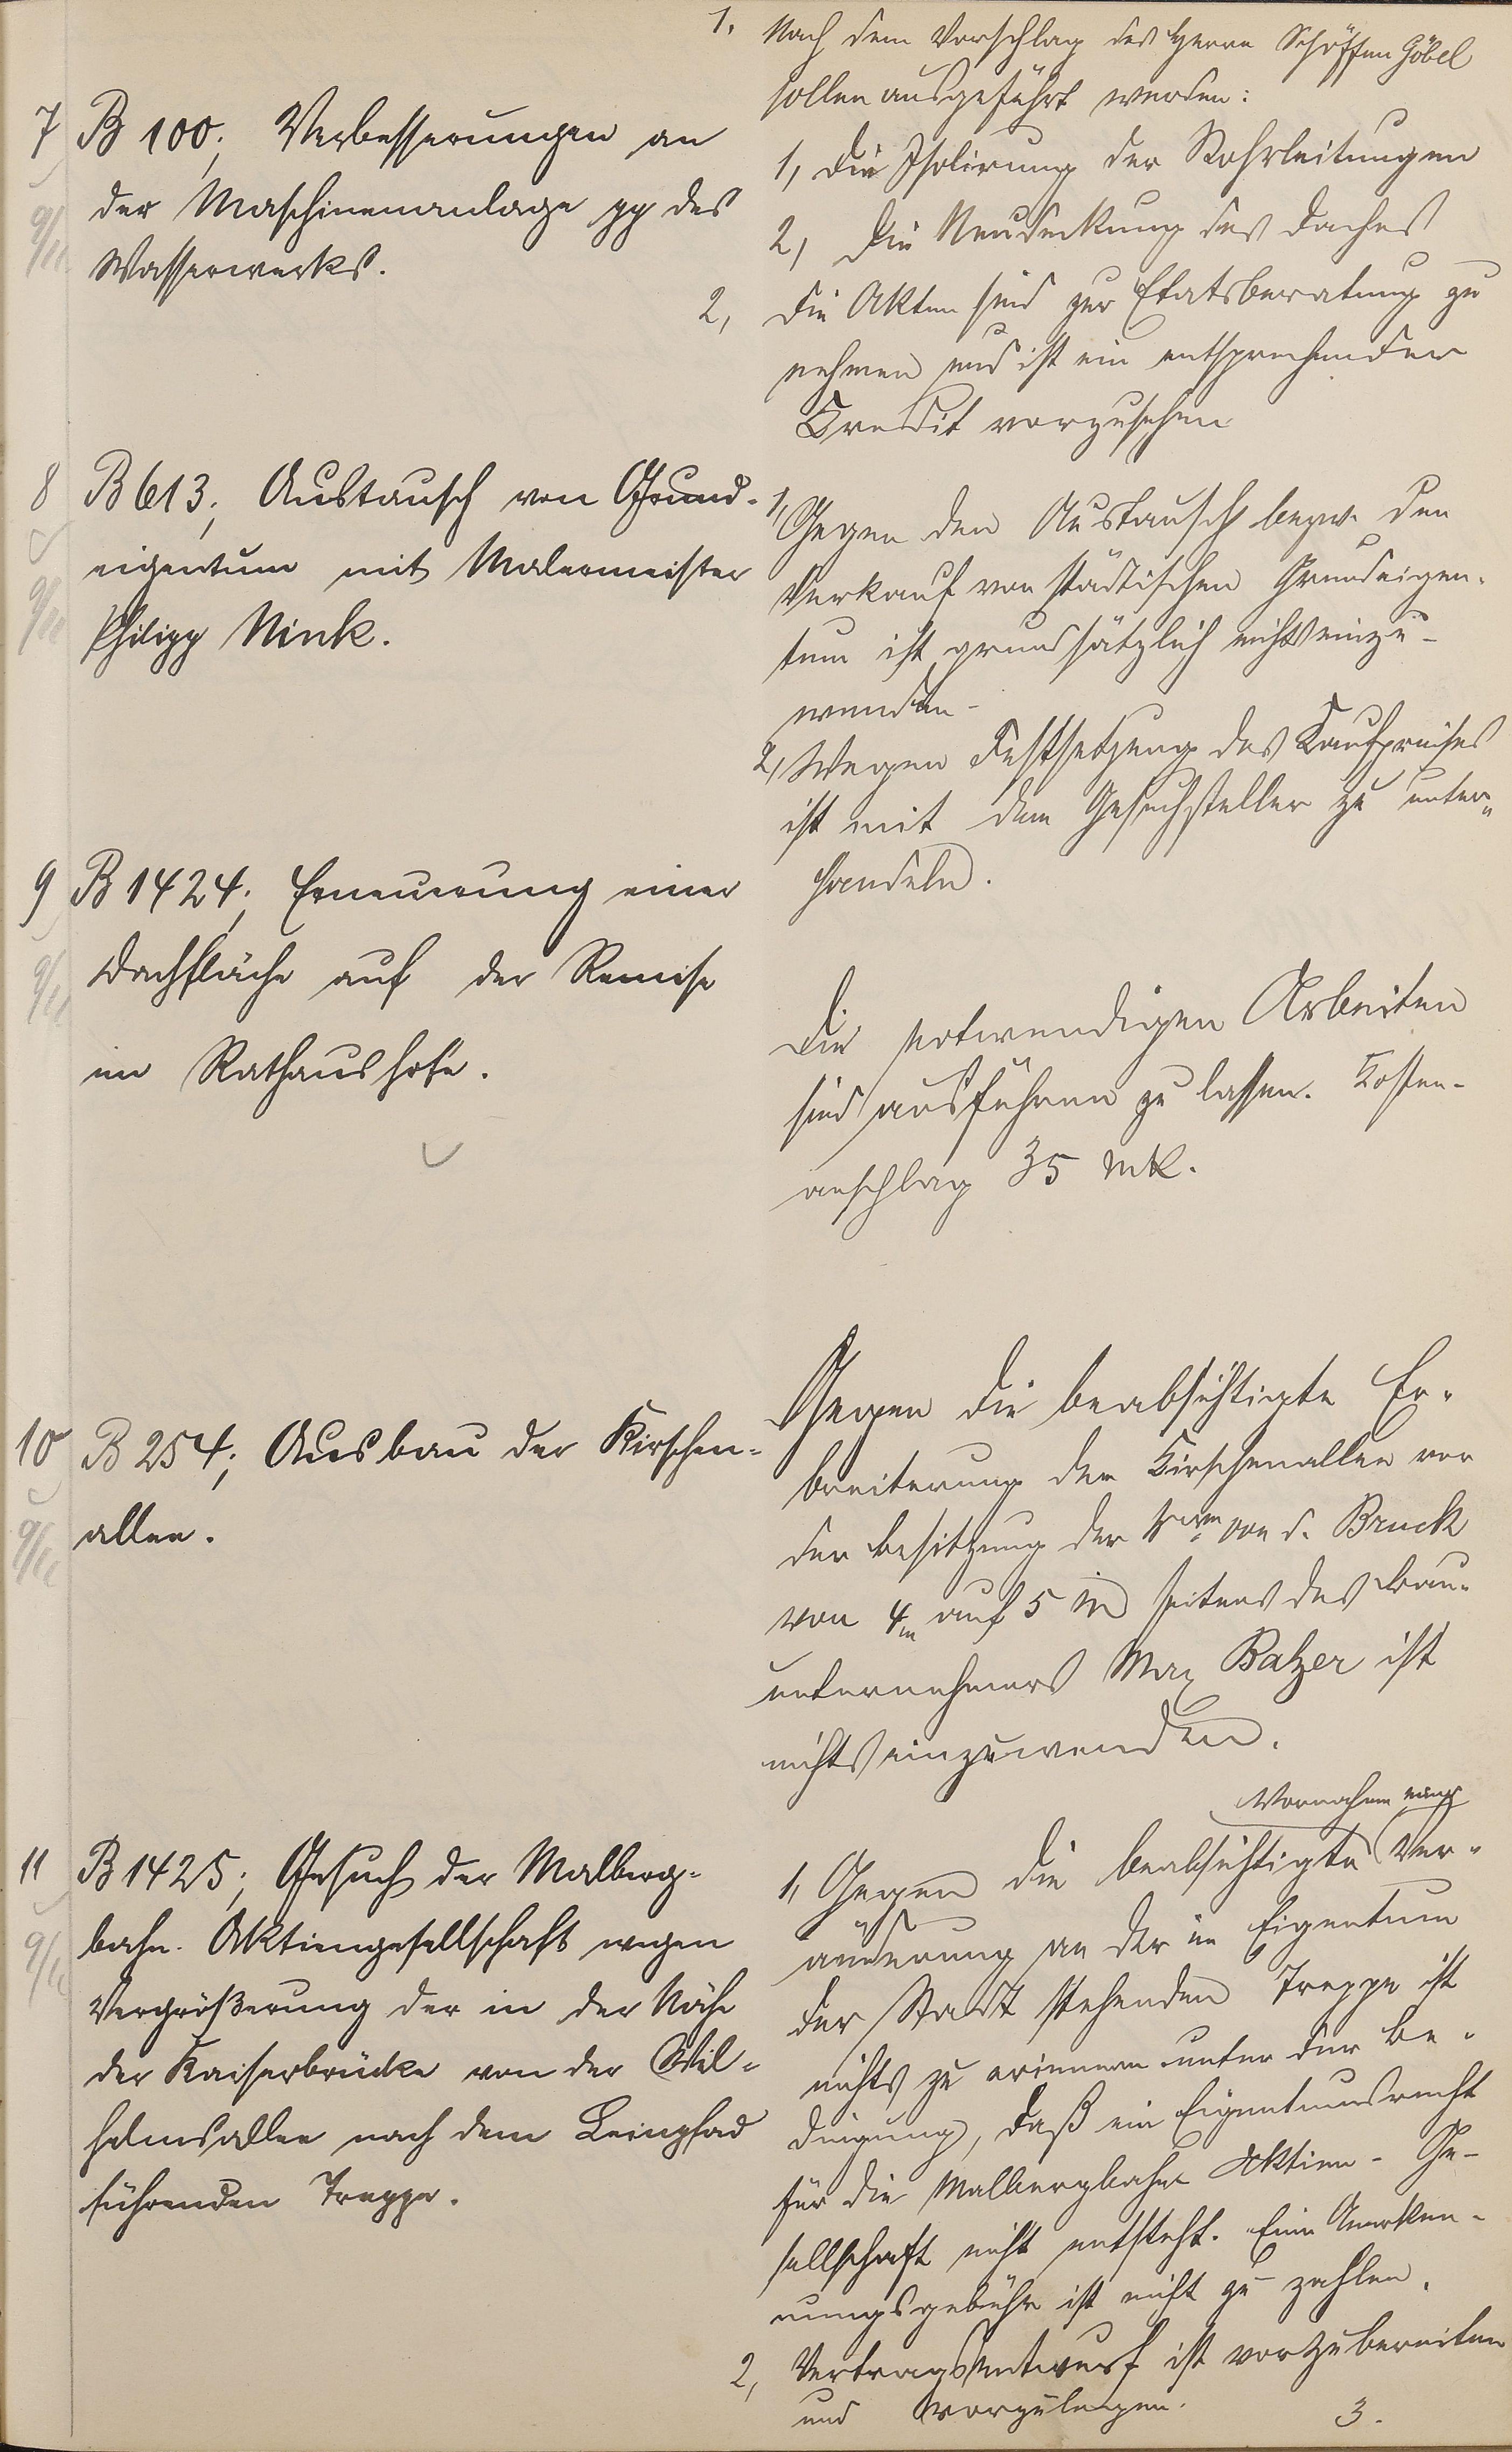 7 B 100; Verbesserungen an
der Maschinenanlage pp des
Wasserwerks.
1. Nach dem Vorschlag des Herrn Schöffen Göbel
sollen ausgeführt werden:
1, die Isolirung der Rohrleitungen
2, Die Neudeckung des Daches
2, Die Akten sind zur Etatsberatung zu
nehmen und ist ein entsprechender
Kredit vorzusehen
8 B 613; Austausch von Grund-
eigentum mit Malermeister
Philipp Nink.
1, Gegen den Austausch bezw. den
Verkauf von städtischen Grundeigen-
tum ist grundsätzlich nichts einzu-
wenden-
2, Wegen Festsetzung des Kaufpreises
ist mit dem Gesuchsteller zu unter-
handeln.
9 B 1424; Erneuerung einer
Dachfläche auf der Remise
im Rathaushofe.
Die notwendigen Arbeiten
sind ausführen zu lassen. Kosten-
anschlag 35 Mk.
10 B 254; Ausbau der Kirschen-
allee.
Gegen die beabsichtigte Er-
breiterung der Kirschenallee vor
der Besitzung der von d. Bruck
von 4m auf 5 m seitens des Bau-
unternehmers Max Balzer ist
nichts einzuwenden.
11 B 1425; Gesuch der Malberg-
bahn- Aktiengesellschaft wegen
Vergrößerung der in der Nähe
der Kaiserbrücke von der Wil-
helmsallee nach dem Leinpfad
führenden Treppe.
Vornahme einer
1, Gegen die beabsichtigte Ver-
änderung an der im Eigentum
der Stadt stehenden Treppe ist
nichts zu erinnern unter der Be-
dingung, daß ein Eigentumsrecht
für die Malbergbahn Aktien- Ge-
sellschaft nicht entsteht. Eine Anerken-
nungsgebühr ist nicht zu zahlen.
2, Vertragsentwurf ist vorzubereiten
und vorzulegen.
3.